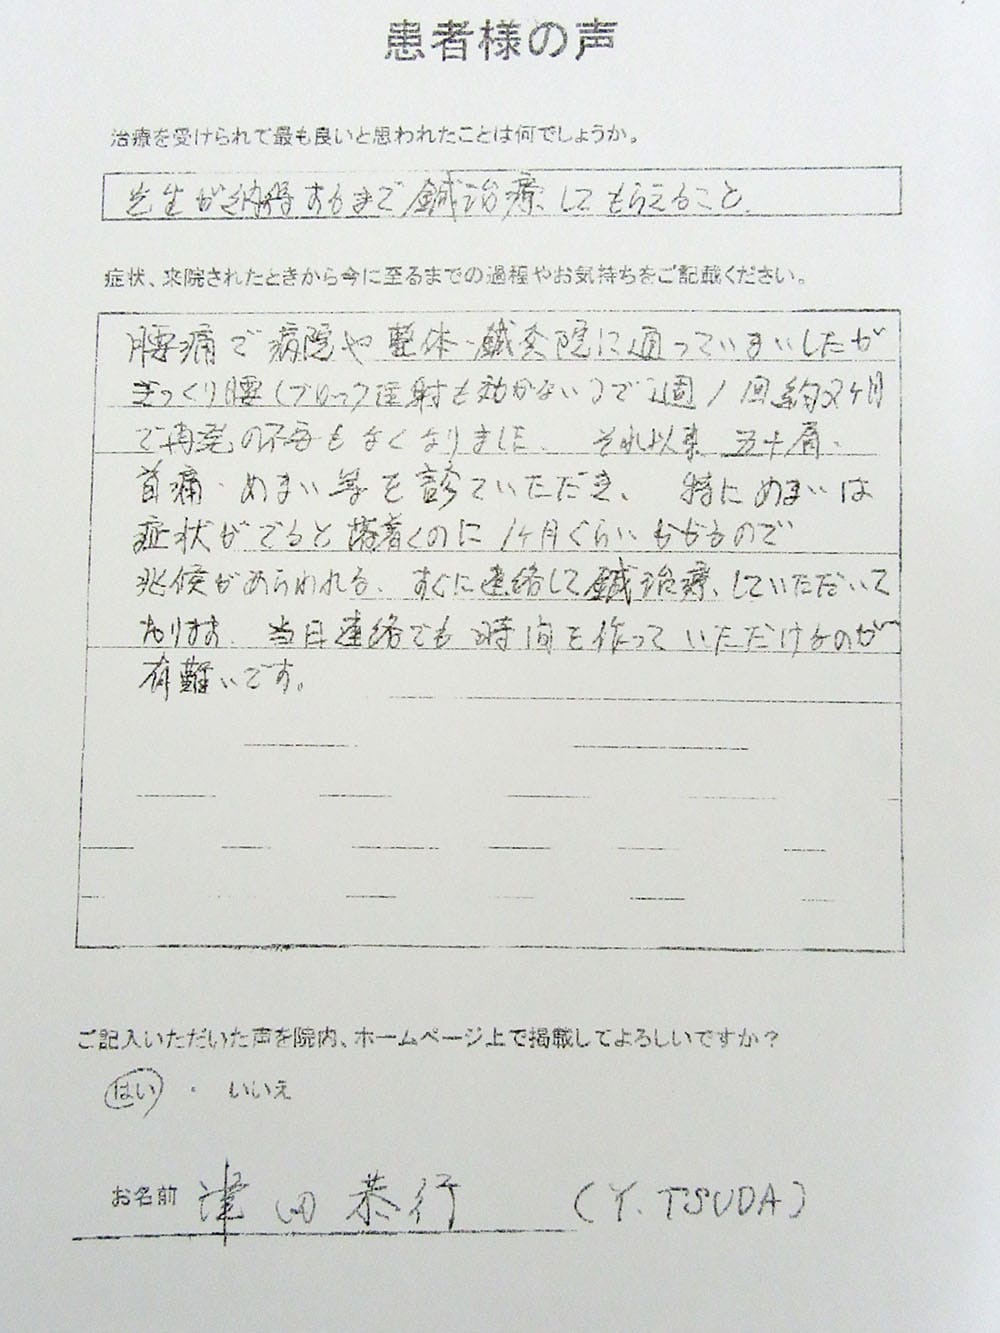 患者様の声
治療を受けられて最も良いと思われたことは何でしょうか。
先生が納得するまで鍼治療してもらえること。
症状、来院されたときから今に至るまでの過程やお気持ちをご記載ください。
腰痛で病院や整体・鍼灸院に通っていましたが
ぎっくり腰(ブロック注射も効かない)で週1回約2ヶ月
で再発の不安もなくなりました。それ以来 五十肩、
首痛・めまい等を診ていただき、特にめまいは
症状がでると落着くのに1ヶ月ぐらいかかるので
兆候があらわれる、すぐに連絡して鍼治療、していただいて
おります。当日連絡でも時間を作っていただけるのが
有難いです。
ご記入いただいた声を院内、ホームページ上で掲載してよろしいですか?
はい ・ いいえ
お名前 津田恭行 (Y. TSUDA)